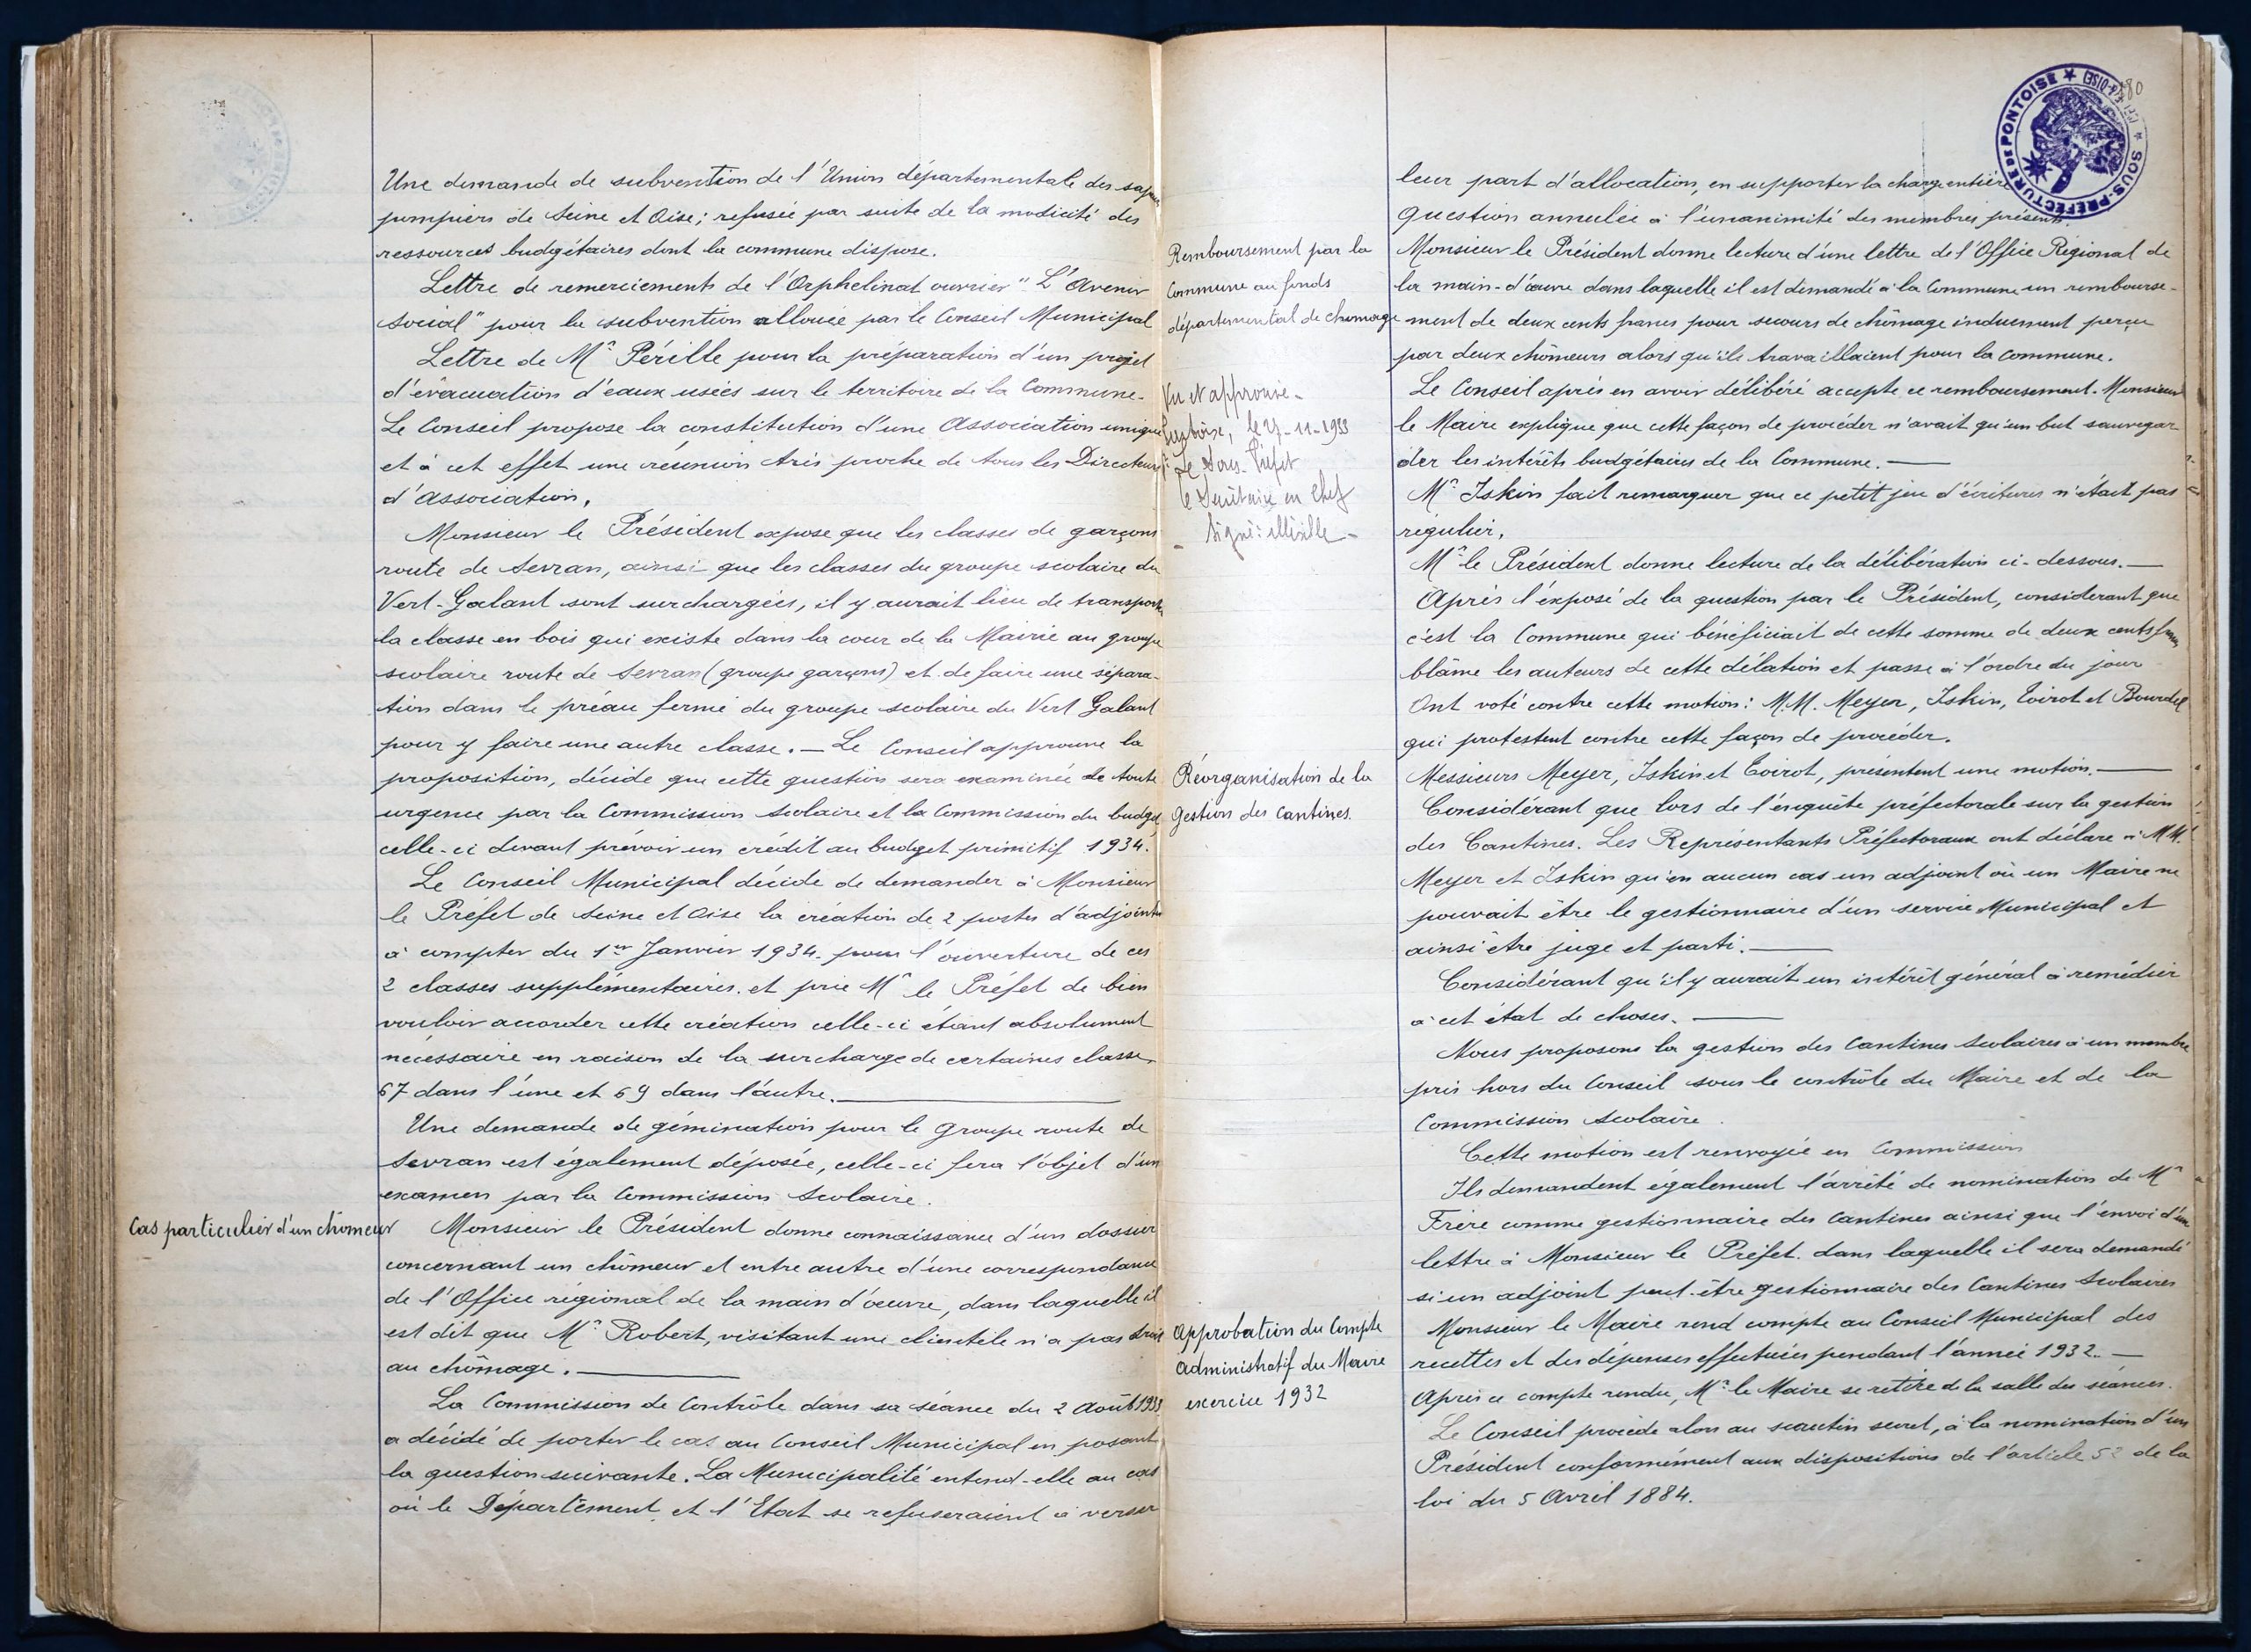 Une demande de subvention de l'Union départementale des sapeurs
pompiers de Seine et Oise; refusée par suite de la modicité des
ressources budgétaires dont la commune dispose.
Lettre de remerciements de l'Orphelinat ouvrier "L'Avenir
Social" pour la subvention allouée par le Conseil Municipal
Lettre de Mr Pérille pour la préparation d'un projet
d'évacuation d'eaux usées sur le territoire de la Commune.
Le Conseil propose la constitution d'une Association unique
et à cet effet une réunion très proche de tous les Directeurs
d'Association.
Monsieur le Président expose que les classes de garçons
route de Sevran, ainsi que les classes du groupe scolaire du
Vert-Galant sont surchargées, il y aurait lieu de transporter
la classe en bois qui existe dans la cour de la Mairie au groupe
scolaire route de Sevran (groupe garçons) et de faire une sépara-
tion dans le préau fermé du groupe scolaire du Vert Galant
pour y faire une autre classe. — Le Conseil approuve la
proposition, décide que cette question sera examinée de toute
urgence par la Commission Scolaire et la Commission du budget
celle-ci devant prévoir un crédit au budget primitif 1934.
Le Conseil Municipal décide de demander à Monsieur
le Préfet de Seine et Oise la création de 2 postes d'adjoints
à compter du 1er Janvier 1934. pour l'ouverture de ces
2 classes supplémentaires. et prie Mr le Préfet de bien
vouloir accorder cette création celle-ci étant absolument
nécessaire en raison de la surcharge de certaines classes
67 dans l'une et 69 dans l'autre. —
Une demande de gémination pour le Groupe route de
Sevran est également déposée, celle-ci fera l'objet d'un
examen par la Commission Scolaire.
Cas particulier d'un chômeur
Monsieur le Président donne connaissance d'un dossier
concernant un chômeur et entre autre d'une correspondance
de l'Office régional de la main d'œuvre, dans laquelle il
est dit que Mr Robert, visitant une clientèle n'a pas droit
au chômage. —
La Commission de Contrôle dans sa séance du 2 Août 1933
a décidé de porter le cas au Conseil Municipal en posant
la question suivante. La Municipalité entend-elle au cas
où le Département et l'Etat se refuseraient à verser
80
SOUS-PRÉFECTURE DE PONTOISE
leur part d'allocation, en supporter la charge entière
Question annulée à l'unanimité des membres présents.
Remboursement par la
Commune au fonds
départemental de chomage
Monsieur le Président donne lecture d'une lettre de l'Office Régional de
la main-d'œuvre dans laquelle il est demandé à la Commune un rembourse-
ment de deux cents francs pour secours de chômage induement perçu
par deux chômeurs alors qu'ils travaillaient pour la Commune.
Vu et approuvé -
Pontoise, le 27-11-1933
Pr Le Sous-Préfet
le Secrétaire en Chef
- Signé: illisible -
Le Conseil après en avoir délibéré accepte ce remboursement. Monsieur
le Maire explique que cette façon de procéder n'avait qu'un but sauvegar
der les intérêts budgétaires de la Commune. —
Mr Iskin fait remarquer que ce petit jeu d'écritures n'était pas
régulier.
Mr le Président donne lecture de la délibération ci-dessous. —
Après l'exposé de la question par le Président, considerant que
c'est la Commune qui bénéficiait de cette somme de deux cents francs
blâme les auteurs de cette délation et passe à l'ordre du jour
Ont voté contre cette motion: M.M. Meyer, Iskin, Toirot et Bourdel
qui protestent contre cette façon de procéder.
Réorganisation de la
Gestion des Cantines.
Messieurs Meyer, Iskin et Toirot, présentent une motion. —
Considérant que lors de l'enquête préfectorale sur la gestion
des Cantines. Les Représentants Préfectoraux ont déclaré à MM.
Meyer et Iskin qu'en aucun cas un adjoint où un Maire ne
pouvait être le gestionnaire d'un service Municipal et
ainsi être juge et parti. —
Considérant qu'il y aurait un intérêt général à remédier
à cet état de choses. —
Nous proposons la gestion des Cantines Scolaires à un membre
pris hors du Conseil sous le contrôle du Maire et de la
Commission Scolaire.
Cette motion est renvoyée en Commission
Ils demandent également l'arrêté de nomination de Mr
Frère comme gestionnaire des Cantines ainsi que l'envoi d'une
lettre à Monsieur le Préfet. dans laquelle il sera demandé
si un adjoint peut-être gestionnaire des Cantines Scolaires
Approbation du Compte
Administratif du Maire
exercice 1932
Monsieur le Maire rend compte au Conseil Municipal des
recettes et des dépenses effectuées pendant l'année 1932. —
Après ce compte rendu, Mr le Maire se retire de la salle des séances.
Le Conseil procède alors au scrutin secret, à la nomination d'un
Président conformément aux dispositions de l'article 52 de la
loi du 5 Avril 1884.